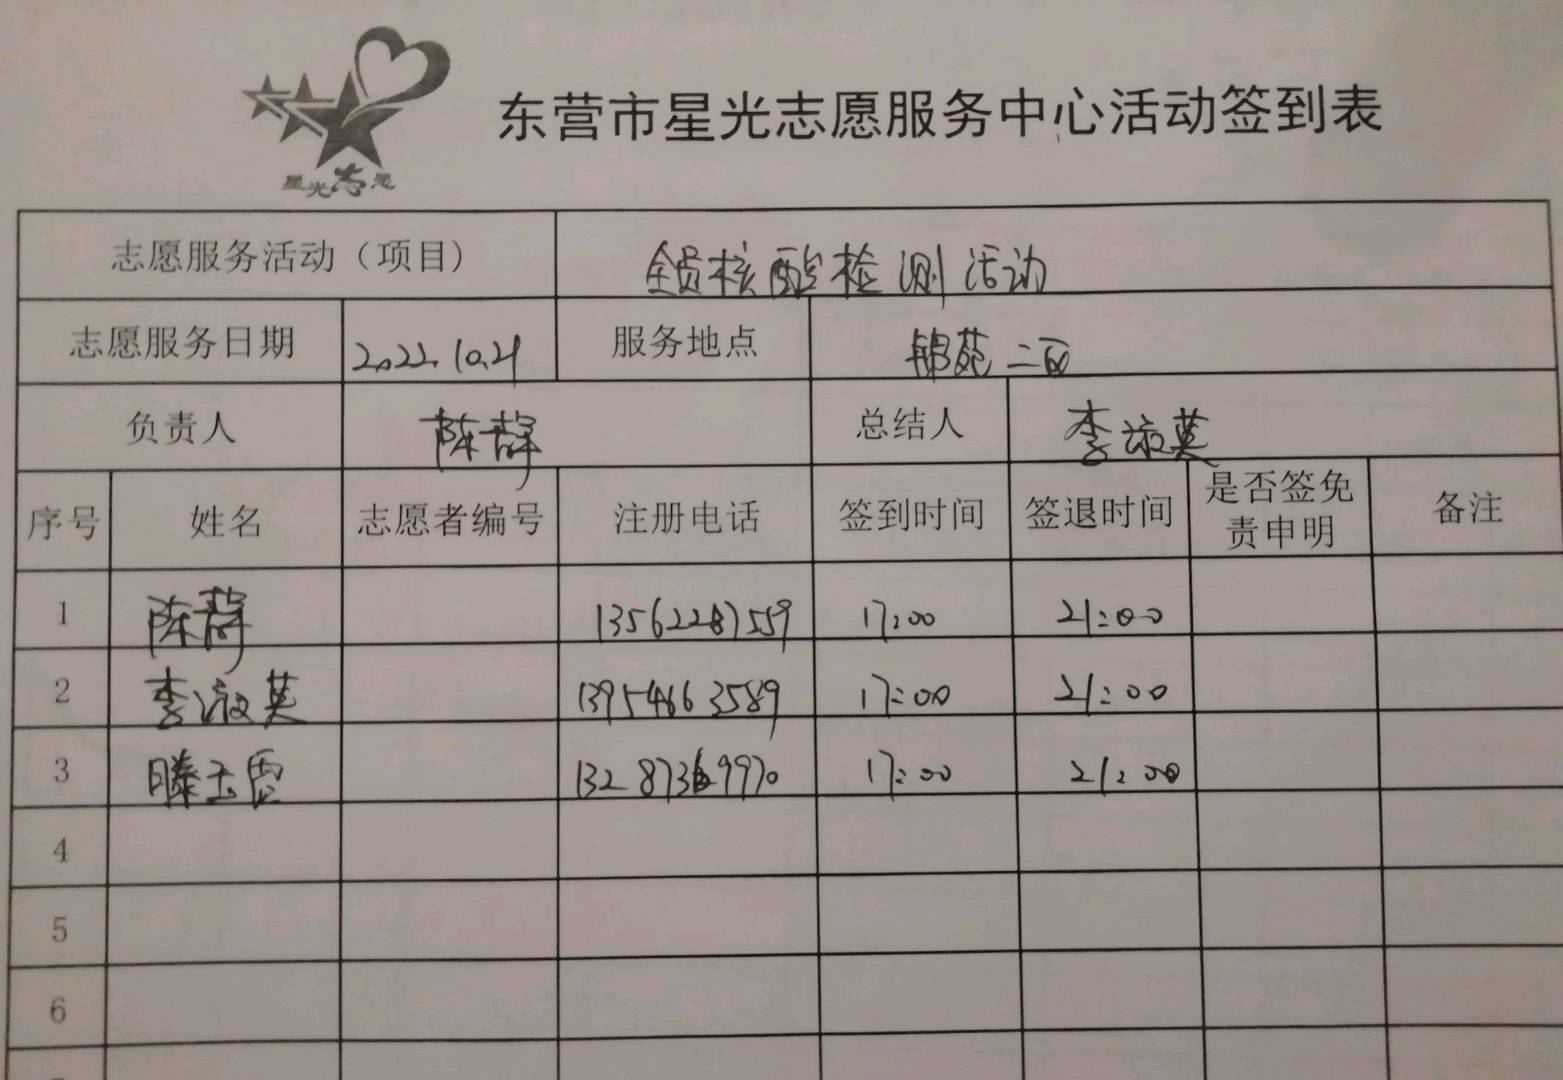 星光志愿
东营市星光志愿服务中心活动签到表
志愿服务活动（项目） 全员核酸检测活动
志愿服务日期 2022.10.21 服务地点 锦苑二区
负责人 陈静 总结人 李淑英
序号 姓名 志愿者编号 注册电话 签到时间 签退时间 是否签免责申明 备注
1 陈静 13562287559 17:00 21:00
2 李淑英 13954663589 17:00 21:00
3 滕玉霞 17:00 21:00
4
5
6